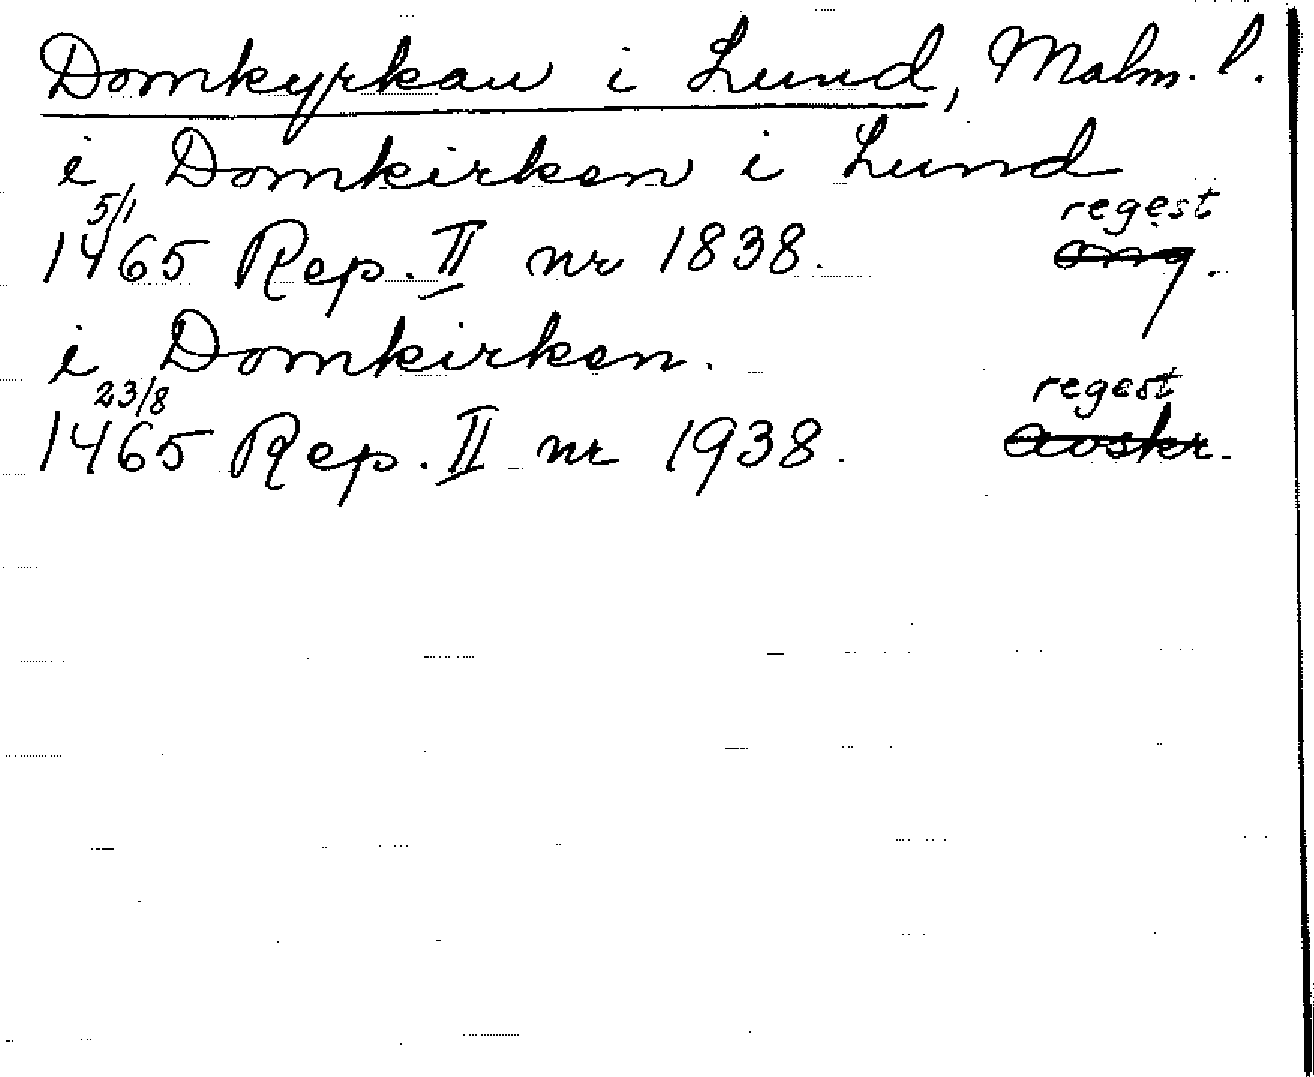 Domkyrkan i Lund, Malm. l.
i Domkirken i Lund
5/1 regest
1465 Rep. II nr 1838. org.
i Domkirken.
23/8 regest
1465 Rep. II nr 1938. avskr.